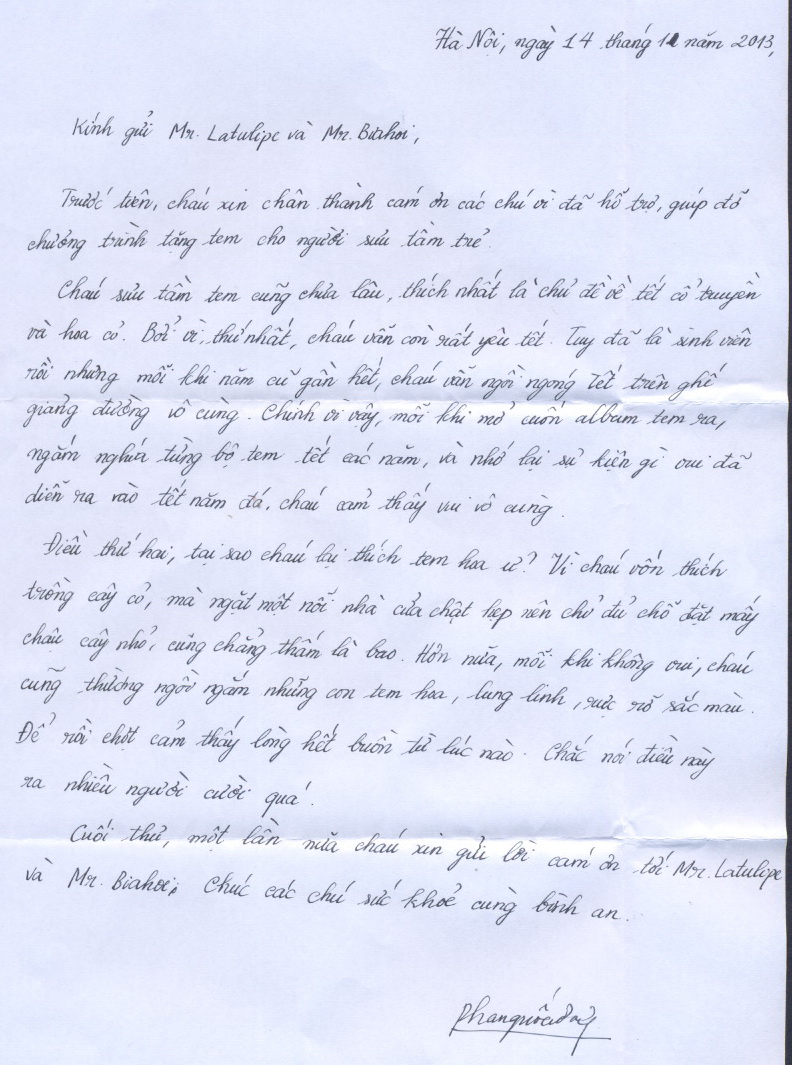 Hà Nội, ngày 14 tháng 11 năm 2013,
Kính gửi Mr. Latulipe và Mr. Biahoi,
Trước tiên, cháu xin chân thành cám ơn các chú vì đã hỗ trợ, giúp đỡ
chương trình tặng tem cho người sưu tầm trẻ.
Cháu sưu tầm tem cũng chưa lâu, thích nhất là chủ đề về tết cổ truyền
và hoa cỏ. Bởi vì, thứ nhất, cháu vẫn còn rất yêu tết. Tuy đã là sinh viên
rồi nhưng mỗi khi năm cũ gần hết, cháu vẫn ngồi ngóng Tết trên ghế
giảng đường vô cùng. Chính vì vậy, mỗi khi mở cuốn album tem ra,
ngắm nghía từng bộ tem tết các năm, và nhớ lại sự kiện gì vui đã
diễn ra vào tết năm đá, cháu cảm thấy vui vô cùng.
Điều thứ hai, tại sao cháu lại thích tem hoa ư? Vì cháu vốn thích
trồng cây cỏ, mà ngặt một nỗi nhà cửa chật hẹp nên chỉ đủ chỗ đặt mấy
chậu cây nhỏ, cũng chẳng thấm là bao. Hơn nữa, mỗi khi không vui, cháu
cũng thường ngồi ngắm những con tem hoa, lung linh, rực rỡ sắc màu.
Để rồi chợt cảm thấy lòng hết buồn từ lúc nào. Chắc nói điều này
ra nhiều người cười quá!
Cuối thư, một lần nữa cháu xin gửi lời cám ơn tới Mr. Latulipe
và Mr. Biahoi. Chúc các chú sức khoẻ cùng bình an.